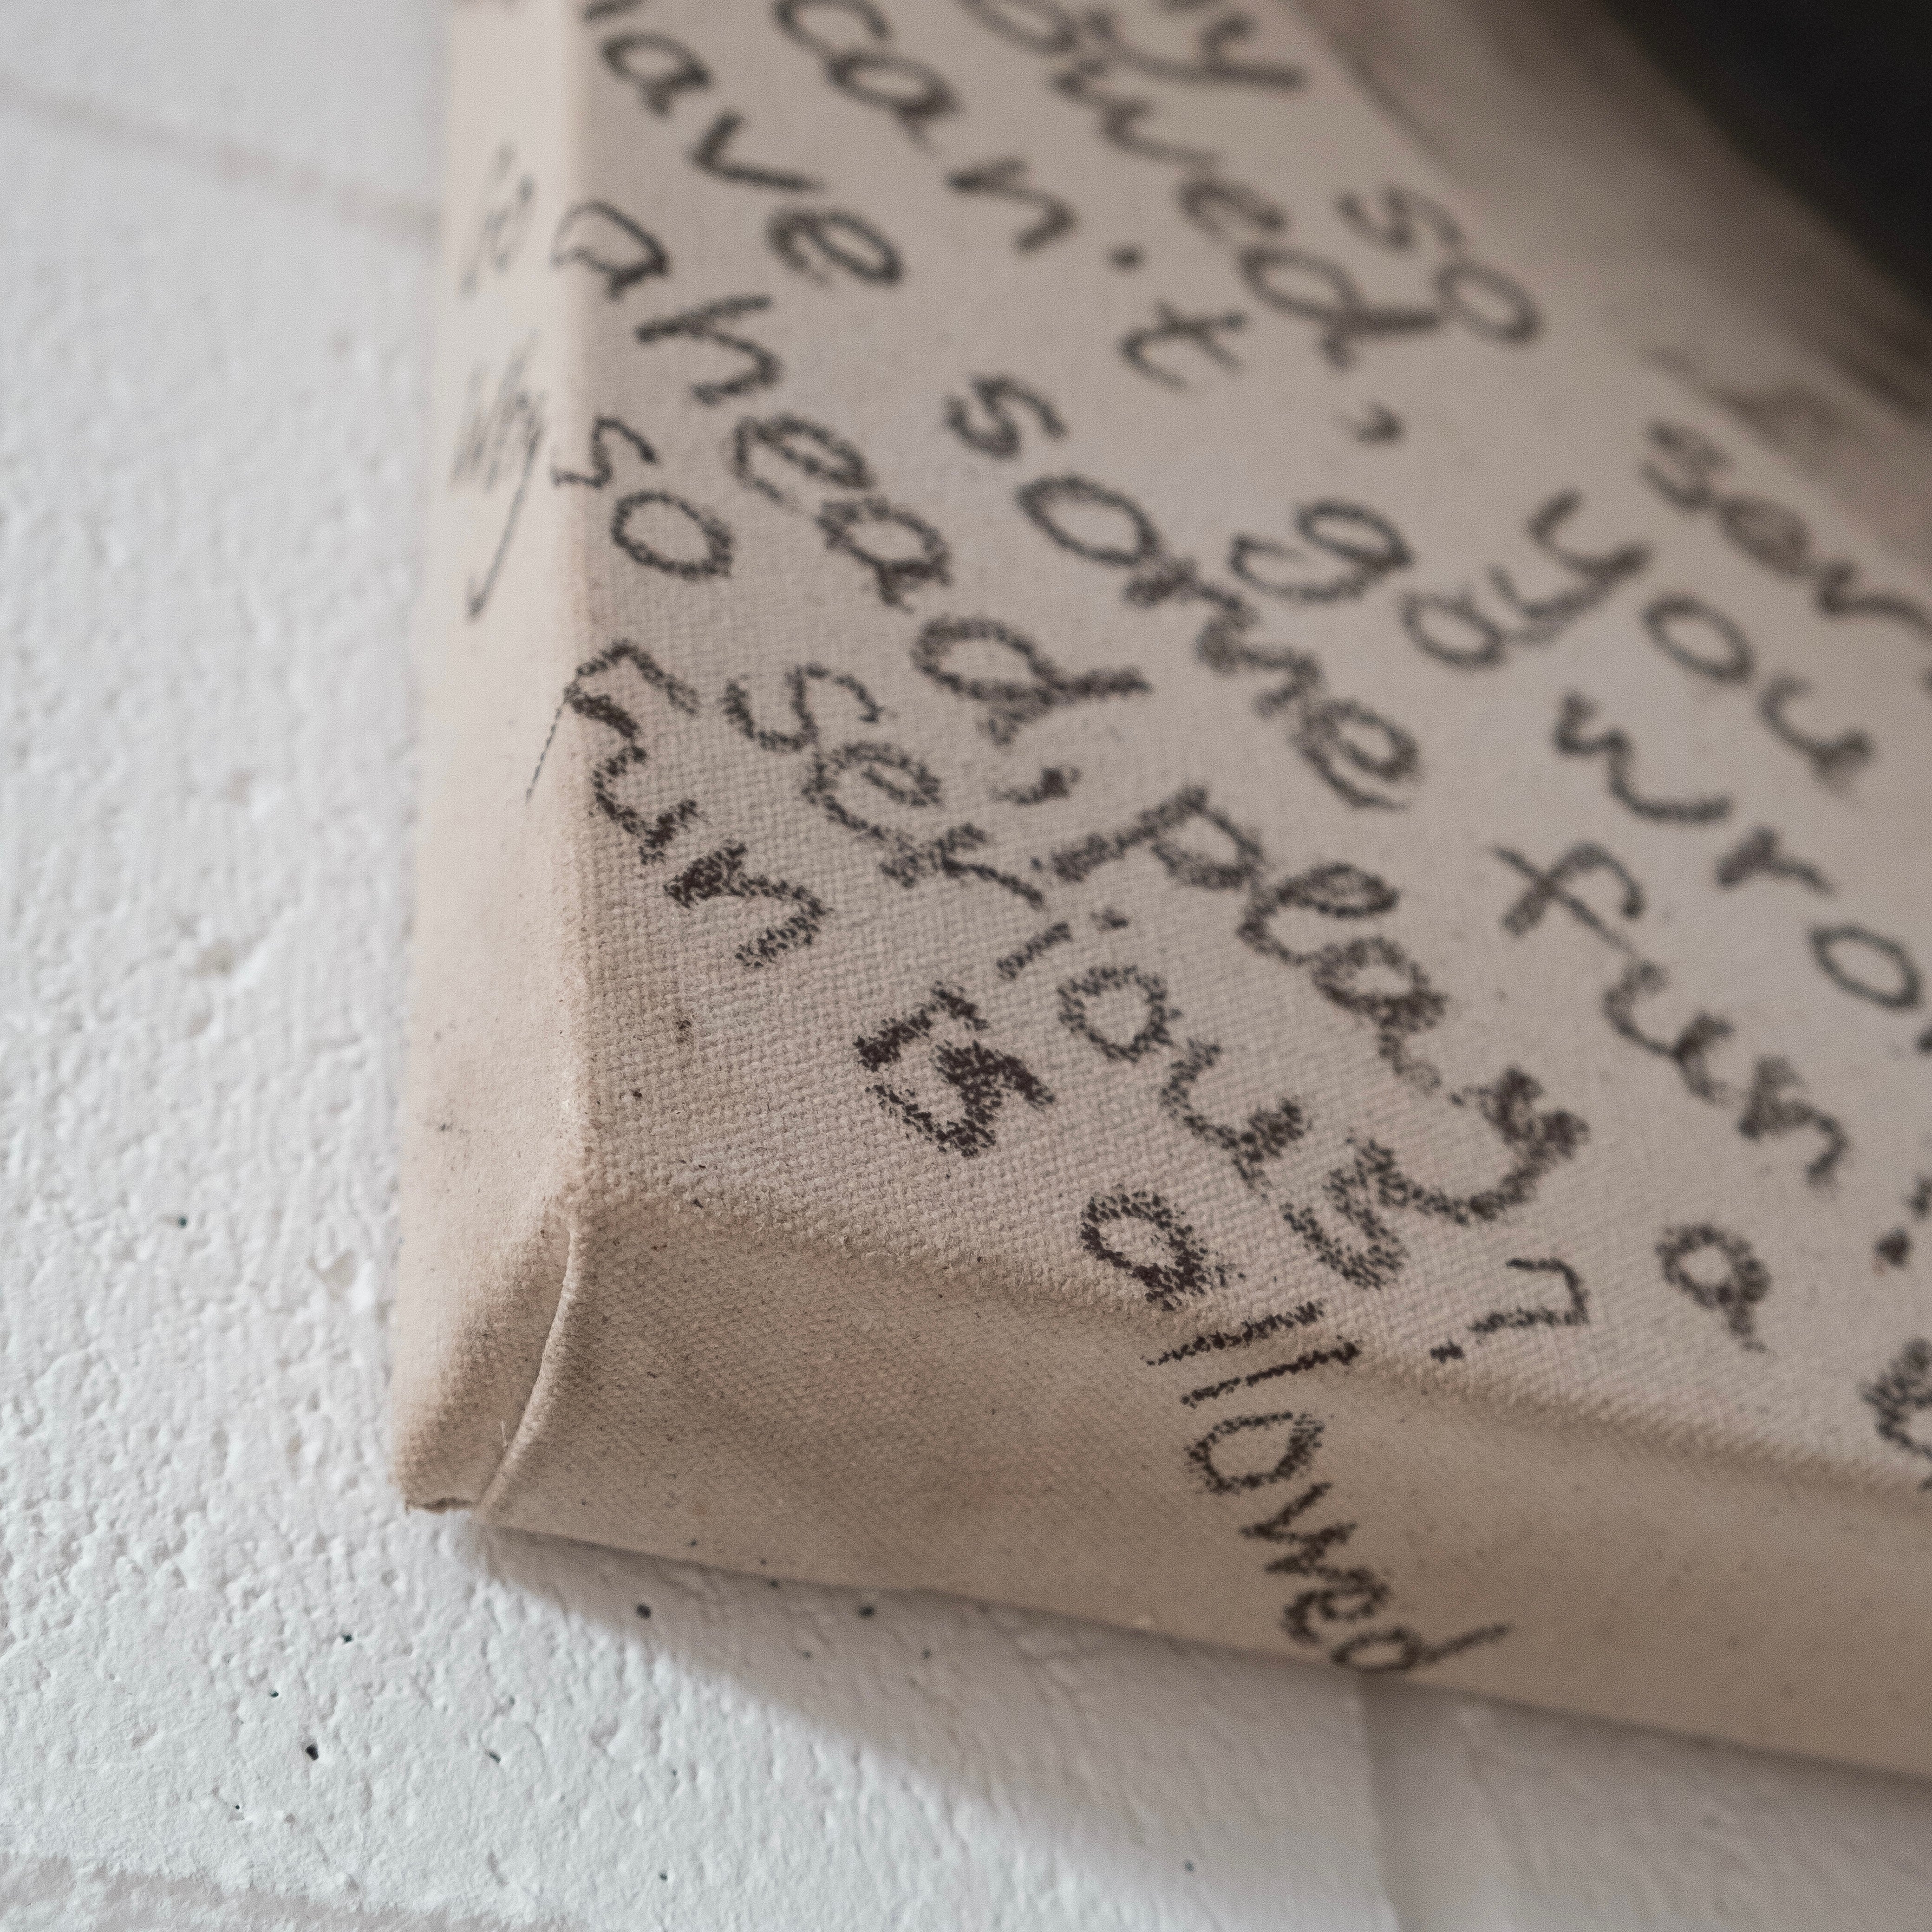 ny so ser
owed, you
can.t go wro
have some fun.
ahead, play a
so serious?
Fun allowed